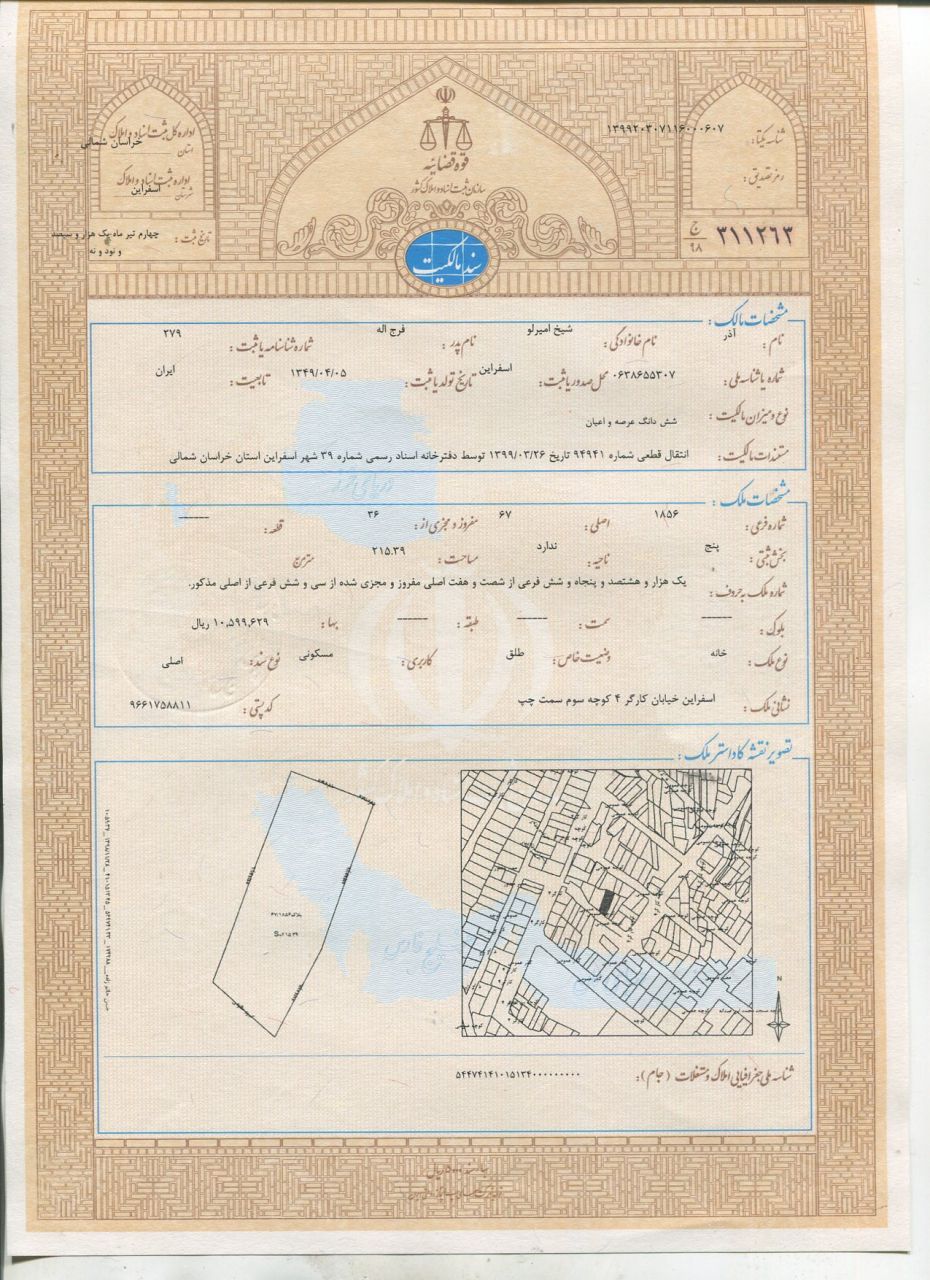 قوه قضائیه
سازمان ثبت اسناد و املاک کشور
شناسه یکتا: ۱۳۹۹۲۰۳۰۷۱۱۶۰۰۰۶۰۷
رمز تصدیق:
۳۱۱۲۶۳ ج ۹۸
اداره کل ثبت اسناد و املاک
استان خراسان شمالی
اداره ثبت اسناد و املاک
شهرستان اسفراین
تاریخ ثبت: چهارم تیر ماه یک هزار و سیصد
و نود و نه
سند مالکیت
مشخصات مالک:
نام: آذر نام خانوادگی: شیخ امیرلو نام پدر: فرج اله شماره شناسنامه یا ثبت: ۳۷۹
شماره یا شناسه ملی: ۰۶۳۸۶۵۵۳۰۷ محل صدور یا ثبت: اسفراین تاریخ تولد یا ثبت: ۱۳۴۹/۰۴/۰۵ تابعیت: ایران
نوع و میزان مالکیت: شش دانگ عرصه و اعیان
مستندات مالکیت: انتقال قطعی شماره ۹۴۹۴۱ تاریخ ۱۳۹۹/۰۳/۲۶ توسط دفترخانه اسناد رسمی شماره ۳۹ شهر اسفراین استان خراسان شمالی
مشخصات ملک:
شماره فرعی: ۱۸۵۶ اصلی: ۶۷ مفروز و مجزی از: ۳۶ قطعه: ------
بخش ثبتی: پنج ناحیه: ندارد مساحت: ۲۱۵.۳۹ مترمربع
شماره ملک به حروف: یک هزار و هشتصد و پنجاه و شش فرعی از شصت و هفت اصلی مفروز و مجزی شده از سی و شش فرعی از اصلی مذکور.
بلوک: ------ سمت: ------ طبقه: ------ بها: ۱۰,۵۹۹,۶۲۹ ریال
نوع ملک: خانه وضعیت خاص: طلق کاربری: مسکونی نوع سند: اصلی
نشانی ملک: اسفراین خیابان کارگر ۴ کوچه سوم سمت چپ کد پستی: ۹۶۶۱۷۵۸۸۱۱
تصویر نقشه کاداستر ملک:
دریای خزر
خلیج فارس
N
شناسه ملی جغرافیایی املاک و مستغلات (جام): ۵۴۴۷۴۱۴۱۰۱۵۱۳۴۰۰۰۰۰۰۰۰۰